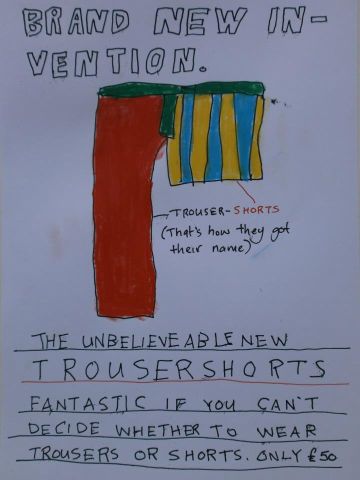 BRAND NEW IN-
VENTION.
TROUSER-SHORTS
(That's how they got
their name)
THE UNBELIEVEABLE NEW
TROUSERSHORTS
FANTASTIC IF YOU CAN'T
DECIDE WHETHER TO WEAR
TROUSERS OR SHORTS. ONLY £50